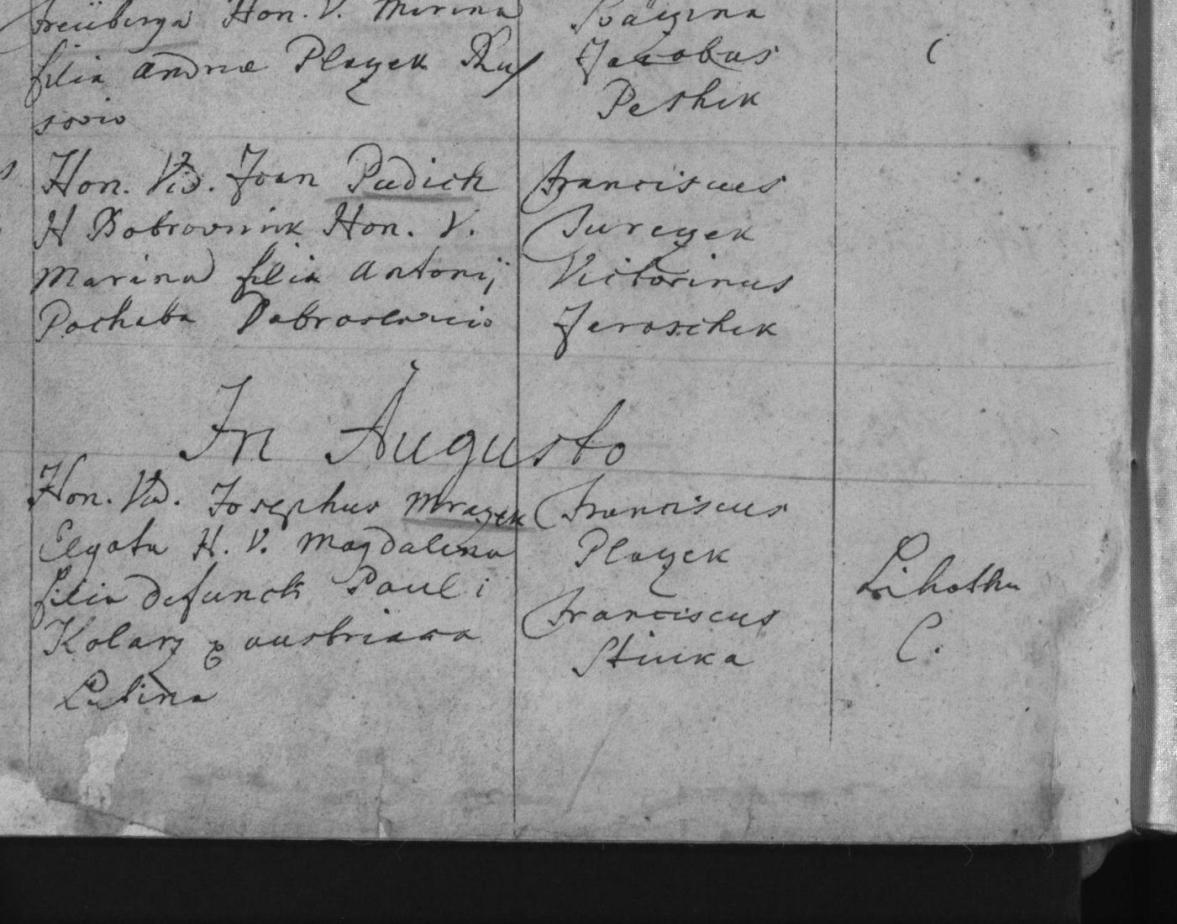 Freüberga Hon. V. Marina
filia Andree Playek
sovio
Jacobus
Peshek
C
Hon. Vid. Joan Pudich
H Dobrovnink Hon. V.
Marina filia Antonij
Pachaba Dobroslavicio
Franciscus
Jureyek
Victorinus
Jeroschek
In Augusto
Hon. Vid. Josephus Mrazek
Elgota H. V. Magdalena
filia defuncti Pauli
Kolarz ex austriaca
Lubina
Franciscus
Playek
Franciscus
Stiuka
Lihotka
C.